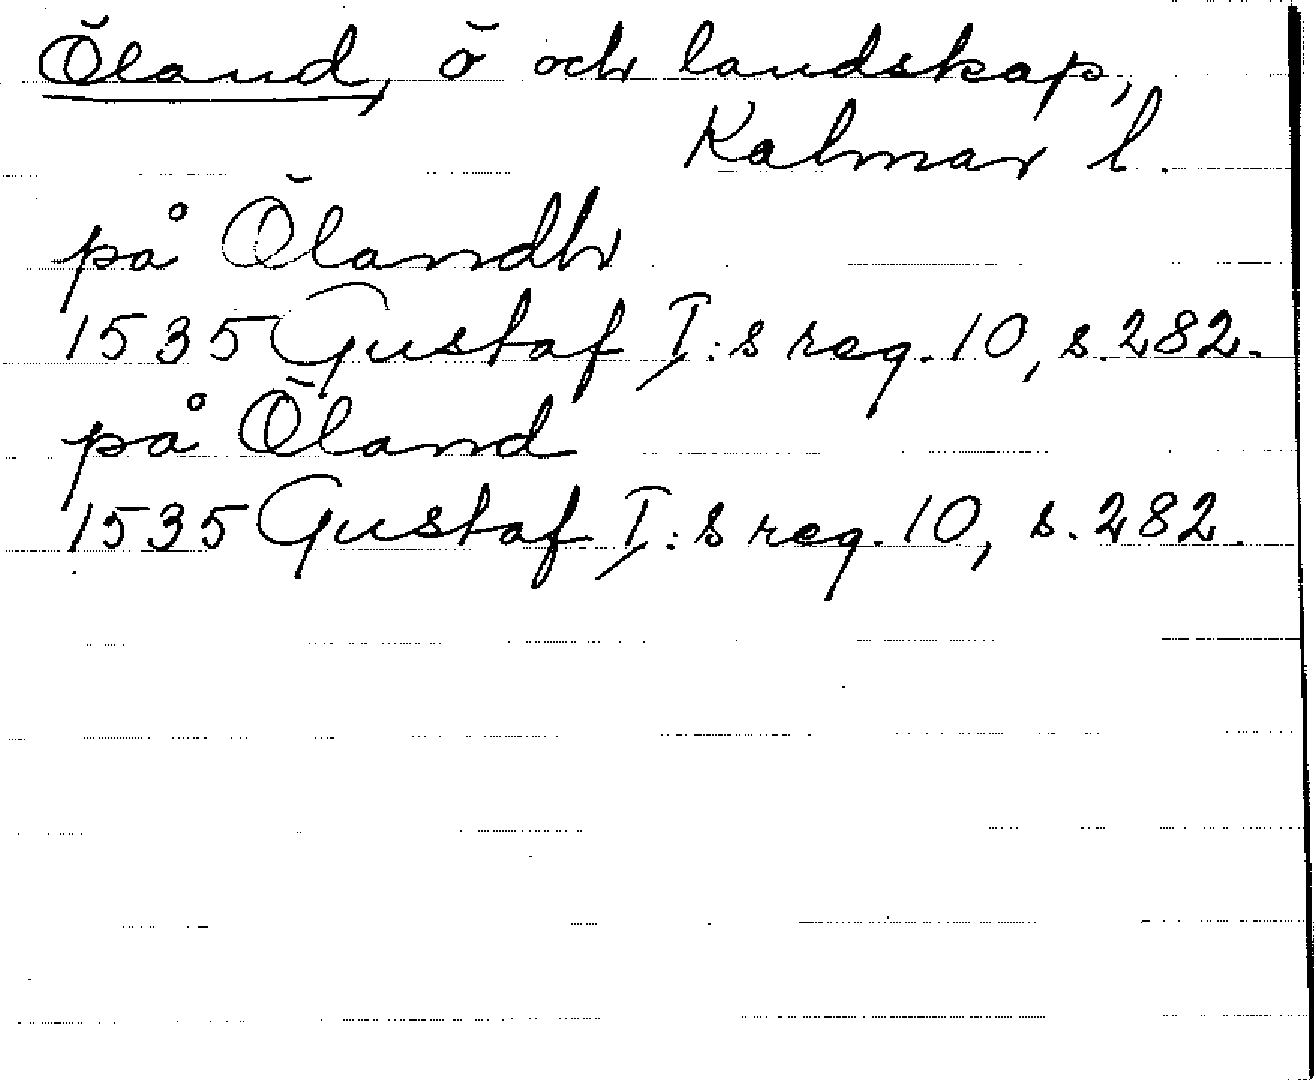 Öland, ö och landskap,
Kalmar l.
på Ölandh
1535 Gustaf I:s reg. 10, s. 282.
på Öland
1535 Gustaf I:s reg. 10, s. 282.